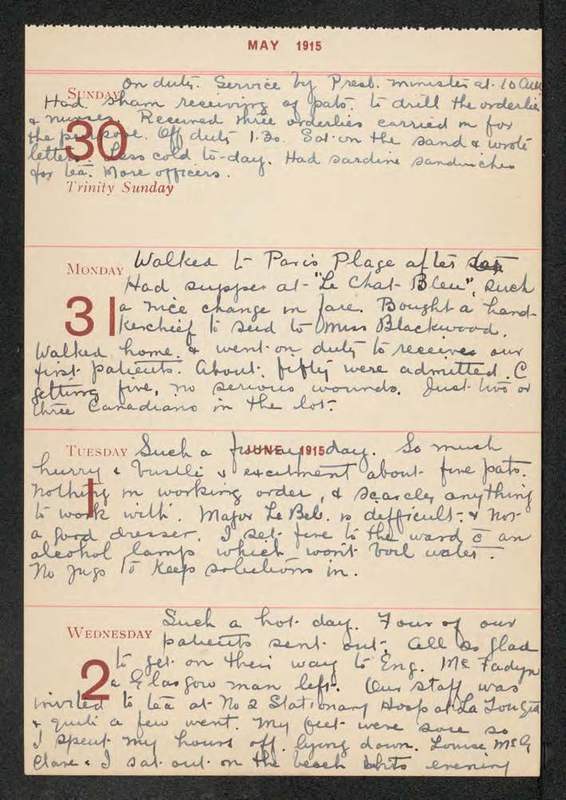 MAY 1915
SUNDAY On duty. Service by Presb. minister at 10 a.m.
Had sham receiving of pats. to drill the orderlies
& nurses. Received three orderlies carried in for
30
the purpose. Off duty 1.30. Sat on the sand & wrote
letters. Less cold to-day. Had sardine sandwiches
for tea. More officers.
Trinity Sunday
MONDAY Walked to Paris Plage after
Had supper at "Le Chat Bleu", such
31 a nice change in fare. Bought a hand-
kerchief to send to Miss Blackwood.
Walked home & went on duty to receive our
first patients. About fifty were admitted. C
getting five, no serious wounds. Just two or
three Canadians in the lot.
JUNE 1915
TUESDAY Such a funny day. So much
hurry & bustle & excitment about five pats.
1
Nothing in working order, & scarcely anything
to work with. Major Le Bel. is difficult & not
a good dresser. I set fire to the ward c̄ an
alcohol lamp which won't boil water.
No jugs to keep solutions in.
WEDNESDAY Such a hot day. Four of our
patients sent out. All so glad
2 to get on their way to Eng. McFadyn
a Glasgow man left. Our staff was
invited to tea at No 2 Stationary Hosp at La
& quite a few went. My feet were sore so
I spent my hours off lying down. Louise, McG
Clare & I sat out on the beach evening